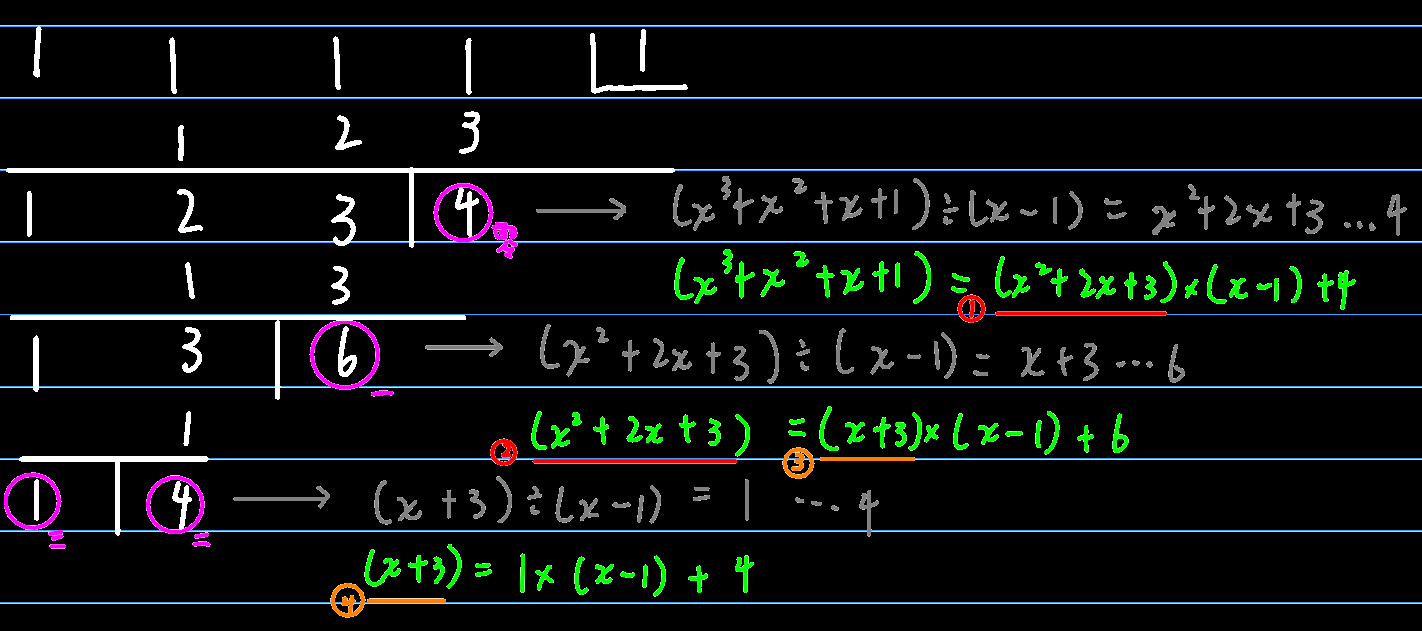 1 1 1 1 | 1
1 2 3
1 2 3 | 4 → (x³+x²+x+1)÷(x-1) = x²+2x+3...4
1 3 (x³+x²+x+1) = (x²+2x+3)×(x-1)+4
①
1 3 | 6 → (x²+2x+3)÷(x-1) = x+3...6
1 ② (x²+2x+3) = (x+3)×(x-1)+6
③
1 | 4 → (x+3)÷(x-1) = 1 ...4
④ (x+3) = 1×(x-1)+4